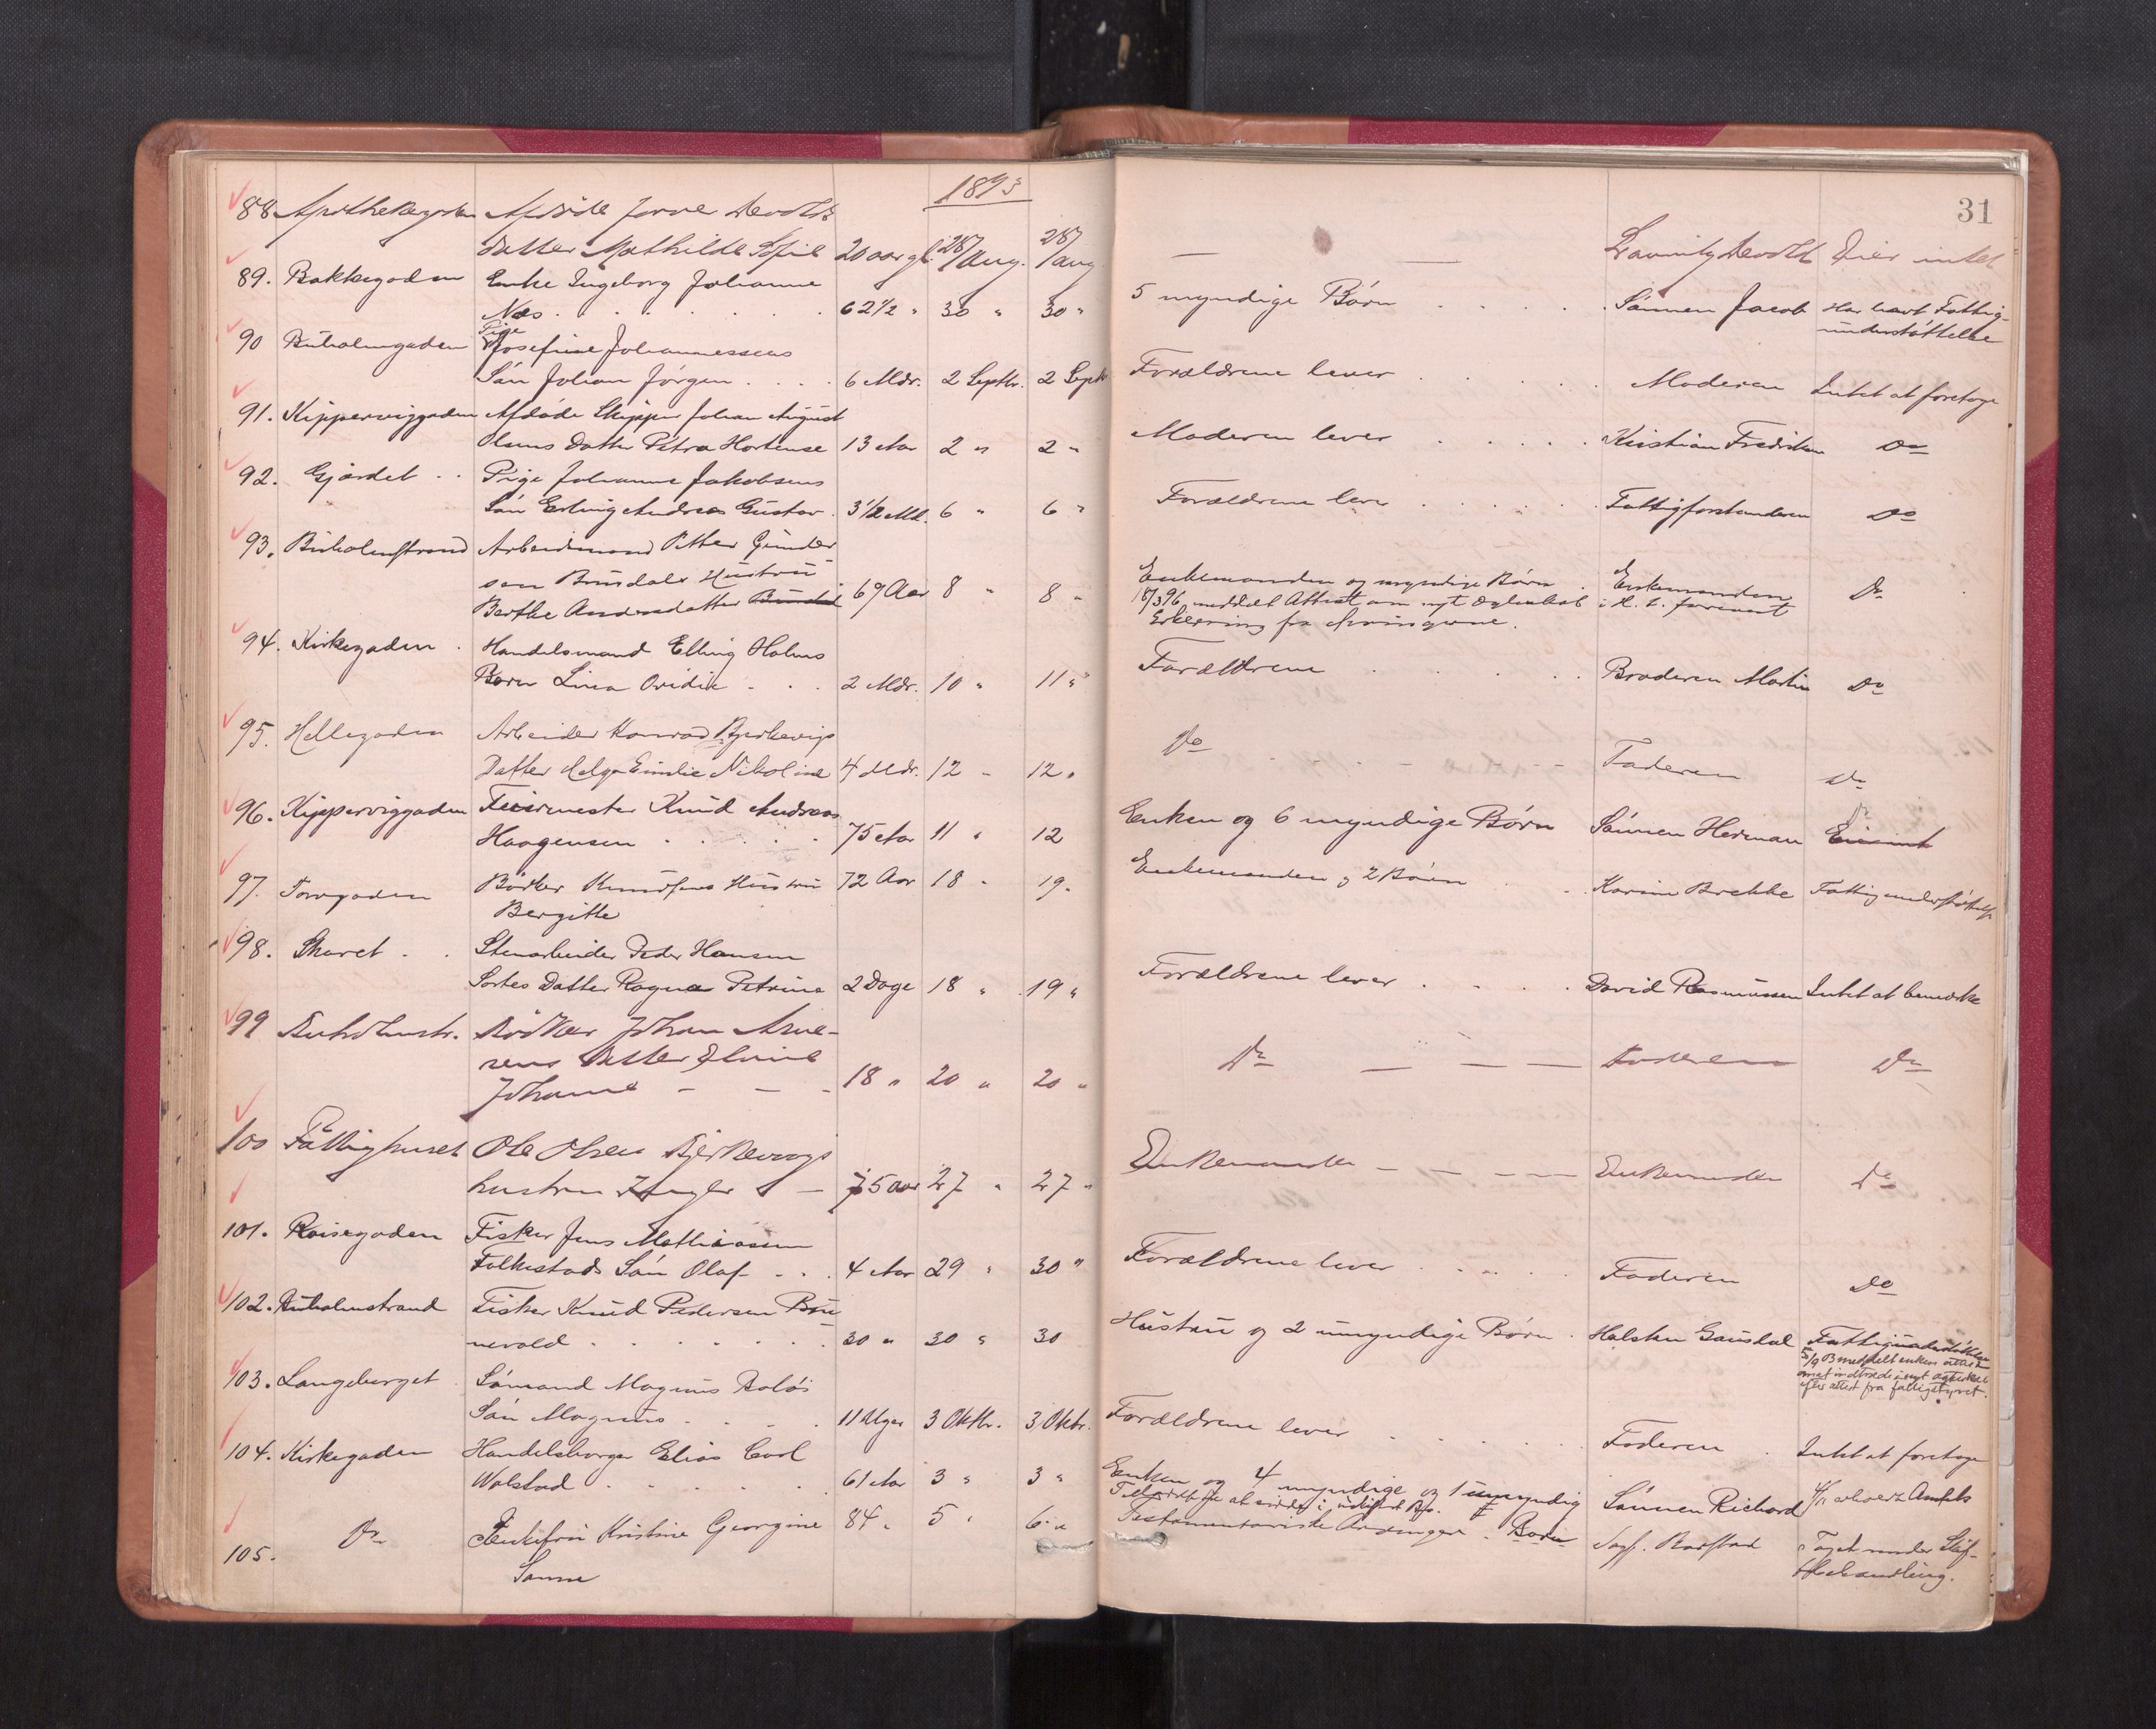 1893
31
88. Apothekergaden Afdøde Jonne Devolds
Datter Mathilde Sofie 20 aar gl. 28/Aug. 28/Aug. — — Devold Eier intet
89. Bakkegaden Enke Ingeborg Johanne
Næs . . . . . . . 62 1/2 " 30 " 30 " 5 myndige Børn . . . . . Sønnen Jacob Har havt Fattig-
understøttelse
90 Buholmgaden Pige Josefine Johannessens
Søn Johan Jørgen . . . . 6 Mdr. 2 Septbr. 2 Septbr Forældrene lever . . . . . Moderen Intet at foretage
91. Kipperviggaden Afdøde Skipper Johan August
Olsens Datter Petra Hortense 13 Aar 2 " 2 " Moderen lever . . . . . Kristian Fredriksen Do
92. Gjørdet . . Pige Johanne Jakobsens
Søn Erling Andreas Gustav . 3 1/2 Md. 6 " 6 " Forældrene lever . . . . . Fattigforstanderen Do
93. Buholmstrand Arbeidsmand Petter Gunder
sen Brusdals Hustru
Berthe Andersdatter 69 Aar 8 " 8 " Enkemanden og myndige Børn . Enkemanden Do
18/3 96 meddelt Attest om nyt Ægteskab i H. t.
Erklæring fra Arvingerne.
94. Kirkegaden . Handelsmand Elling Holms
Barn Lina Ovidie . . . 2 Mdr. 10 " 11 " Forældrene . . . . . Broderen Martin Do
95. Hellegaden Arbeider Konrad Bjerkevigs
Datter Helga Emilie Nikoline 4 Mdr. 12 " 12 " Do . . . . . Faderen Do
96. Kipperviggaden Feiermester Knud Andreas
Haagensen . . . . . 75 Aar 11 " 12 Enken og 6 myndige Børn Sønnen Herman Do
97. Torvgaden Bødker Knudsens Hustru 72 Aar 18 " 19 " Enkemanden og 2 Børn . . Karine Brekke Fattigunderstøttelse
Bergitte
98. Skaret . . Stenarbeider Peder Hansen
Sortes Datter Ragna Petrine 2 Dage 18 " 19 " Forældrene lever . . . . David Rasmussen Intet at bemærke
99 Buholmstr. Bødker Johan Arne-
sens Datter Eline
Johanne — — - 18 " 20 " 20 " Do — — — Faderen Do
100 Fattighuset Ole Olsen Bjerkevigs
hustru — 75 aar 27 " 27 " Enkemanden — — — — Enkemanden Do
101. Røisegaden Fisker Jens Mathiassen
Folkestads Søn Olaf . . . 4 Aar 29 " 30 " Forældrene lever . . . . . Faderen Do
102. Buholmstrand Fisker Knud Pedersen Bru
nevold . . . . . . . 30 " 30 " 30 Hustru og 2 umyndige Børn . Halsten Gausdal Fattigunderstøttelse
meddelt enken attest
om at indtræde i nyt ægteskab
efter attest fra fattigstyret.
103. Langeberget Sømand Magnus Boløs
Søn Magnus . . . . . 11 Uger 3 Oktbr. 3 Oktbr. Forældrene lever . . . . . . Faderen . Intet at foretage
104. Kirkegaden Handelsborger Elias Carl
Walstad . . . . . . . 61 Aar 3 " 3 " Enken og 4 myndige og 1 umyndig Sønnen Richard
Tilladelse at sidde i uskiftet Bo. Børn
105. Do Enkefru Kristine Georgine 84 " 5 " 6 " Testamentariske Arvinger . Sagf. Taget under Skif-
Sanne tebehandling.